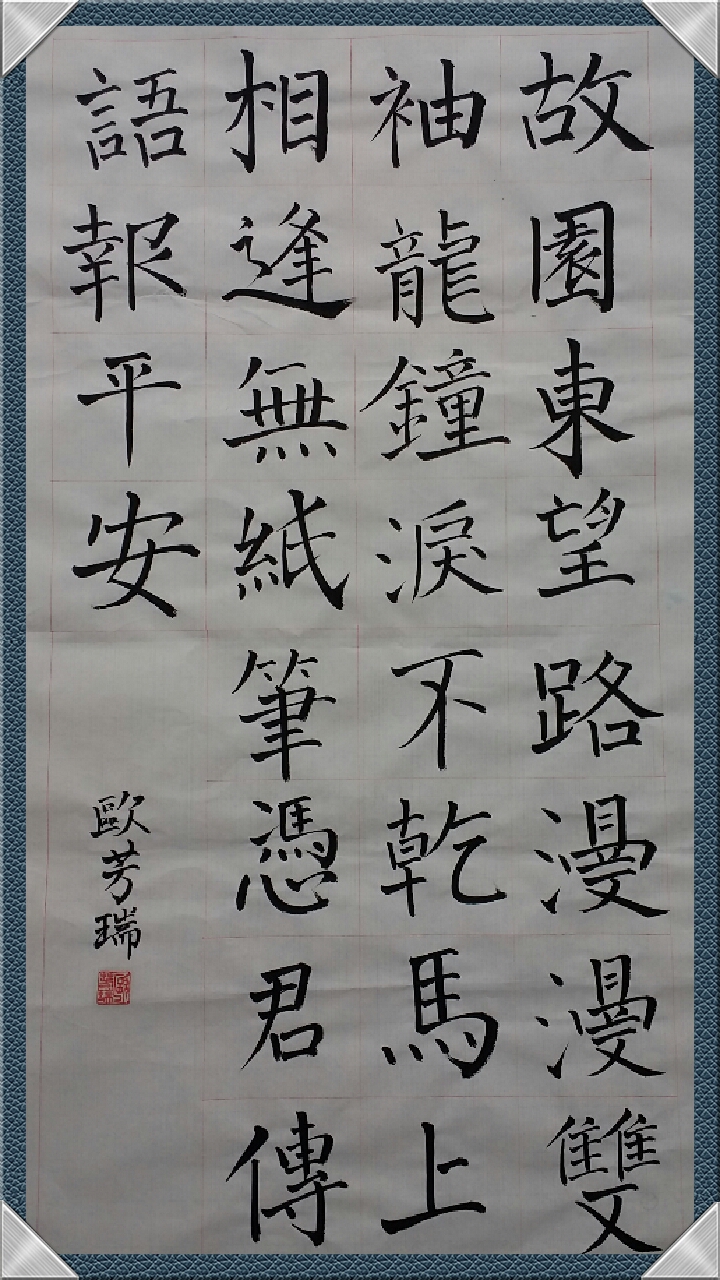 故園東望路漫漫雙
袖龍鐘淚不乾馬上
相逢無紙筆憑君傳
語報平安
歐芳瑞